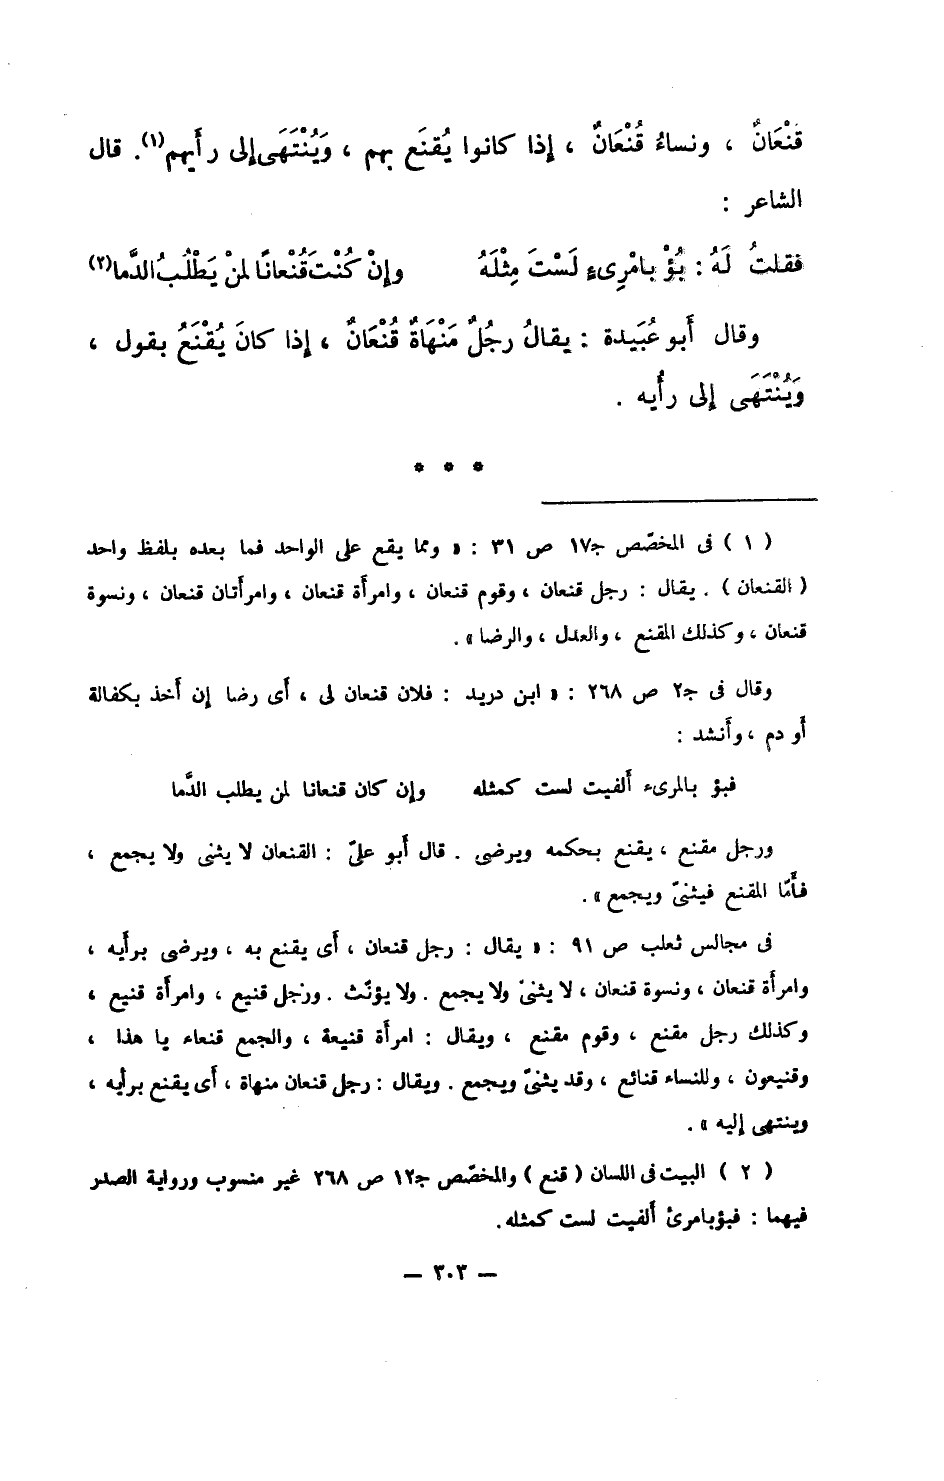 قُنْعَانٌ ، ونساءُ قُنْعَانٌ ، إذا كانوا يُقنَع بهم ، وَيُنْتَهَى إلى رأَيهم(١). قال
الشاعر :
فقلتُ لَهُ : بُؤْ بامْرِىءٍ لَسْتَ مِثْلَهُ وإنْ كُنْتَ قُنْعانًا لمنْ يَطْلُبُ الدَّما(٢)
وقال أَبو عُبَيدة : يقالُ رجُلٌ مَنْهَاةٌ قُنْعَانٌ ، إذا كانَ يُقْنَعُ بقول ،
وَيُنْتَهَى إلى رأْيه .
* * *
( ١ ) فى المخصّص ج١٧ ص ٣١ : « ومما يقع على الواحد فما بعده بلفظ واحد
( القنعان ) . يقال : رجل قنعان ، وقوم قنعان ، وامرأَة قنعان ، وامرأَتان قنعان ، ونسوة
قنعان ، وكذلك المقنع ، والعدل ، والرضا » .
وقال فى ج٢ ص ٢٦٨ : « ابن دريد : فلان قنعان لى ، أَى رضا إن أَخذ بكفالة
أَو دم ، وأَنشد :
فبؤ بالمرىء أَلفيت لست كمثله وإن كان قنعانا لمن يطلب الدَّما
ورجل مقنع ، يقنع بحكمه ويرضى . قال أَبو علىّ : القنعان لا يثنى ولا يجمع ،
فأَمّا المقنع فيثنىّ ويجمع » .
فى مجالس ثعلب ص ٩١ : « يقال : رجل قنعان ، أَى يقنع به ، ويرضى برأَيه ،
وامرأَة قنعان ، ونسوة قنعان ، لا يثنىّ ولا يجمع . ولا يؤنّث . ورجل قنيع ، وامرأَة قنيع ،
وكذلك رجل مقنع ، وقوم مقنع ، ويقال : امرأَة قنيعة ، والجمع قنعاء يا هذا ،
وقنيعون ، وللنساء قنائع ، وقد يثنىّ ويجمع . ويقال : رجل قنعان منهاة ، أَى يقنع برأيه ،
وينتهى إليه » .
( ٢ ) البيت فى اللسان ( قنع ) والمخصّص ج١٢ ص ٢٦٨ غير منسوب ورواية الصدر
فيهما : فبؤبامرئ أَلفيت لست كمثله.
— ٣٠٣ —